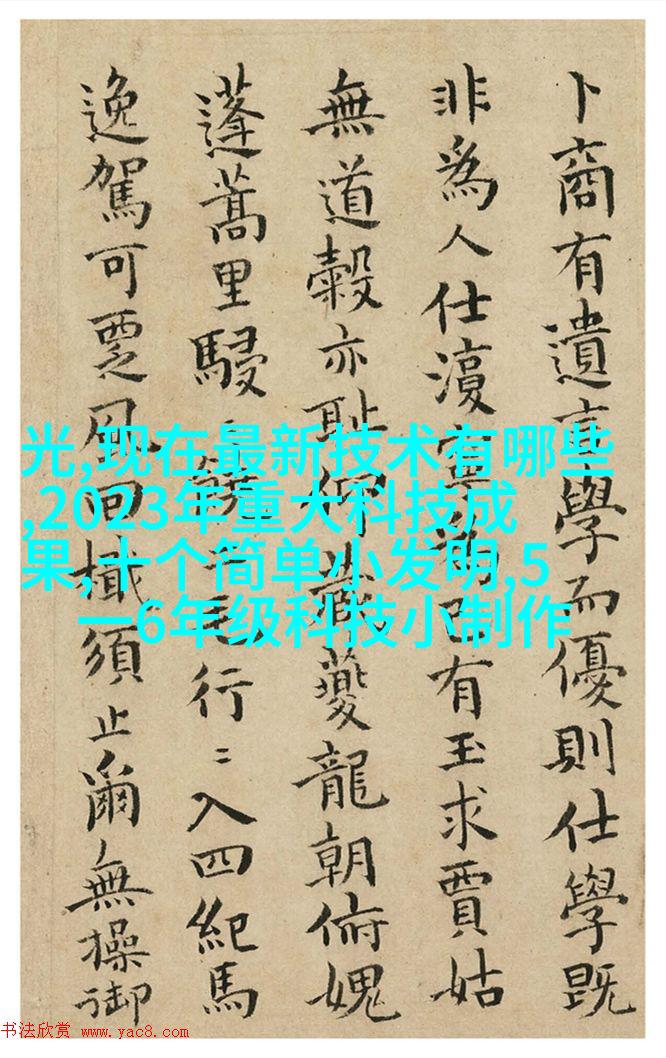 卜商有遺學而優則仕學既
非為人仕湏有玉求賈姑
無道穀亦恥仰夔龍朝俯媿
蓬蒿里駸毛行〻入四紀馬
逸駕可覂風回檝須止爾無操御
光,现在最新技术有哪些
,2023年重大科技成
果,十个简单小发明,5
一6年级科技小制作
书法欣赏 www.yac8.com